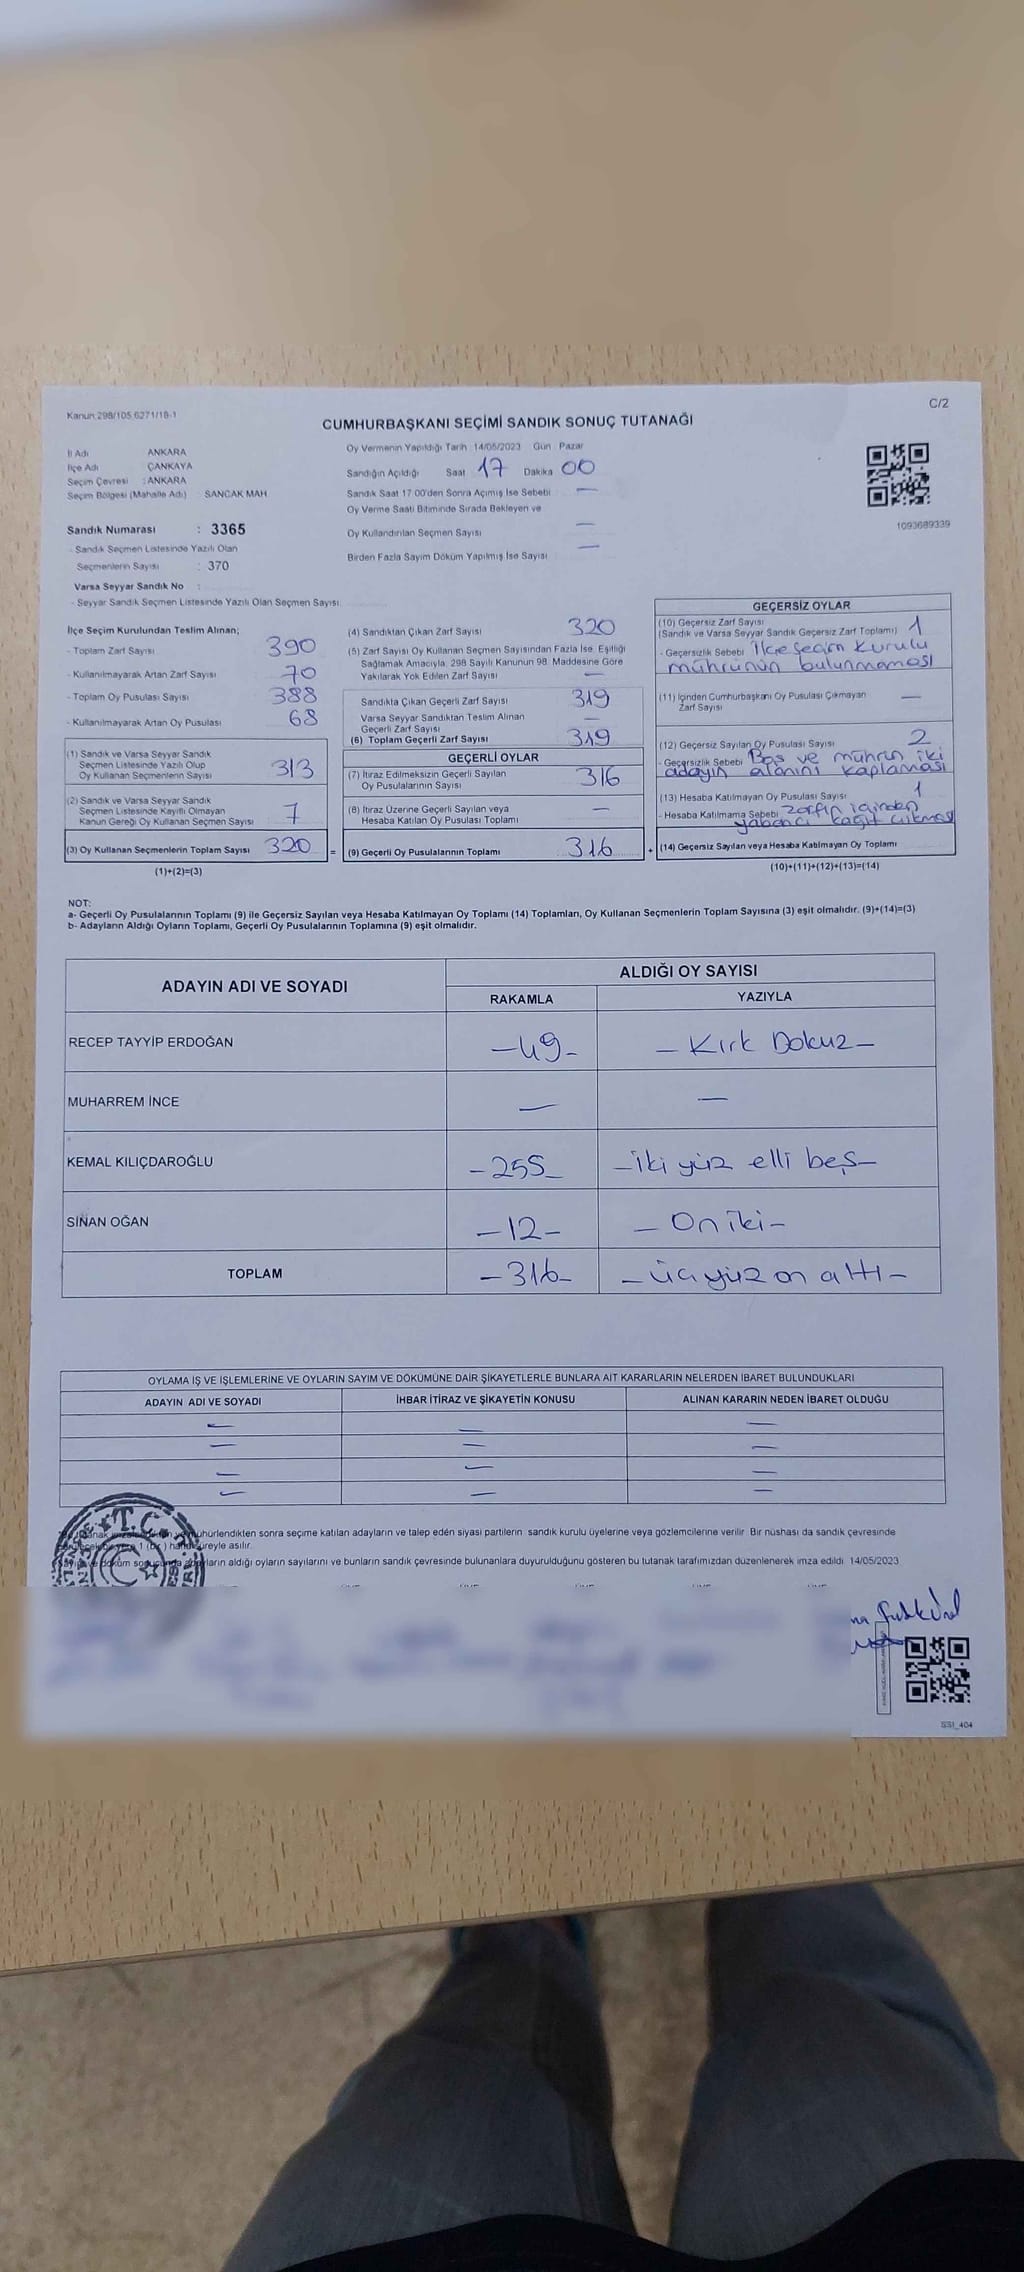 Kanun:298/105.6271/18-1
C/2
CUMHURBAŞKANI SEÇİMİ SANDIK SONUÇ TUTANAĞI
İl Adı ANKARA
İlçe Adı ÇANKAYA
Seçim Çevresi : ANKARA
Seçim Bölgesi (Mahalle Adı) SANCAK MAH
Sandık Numarası : 3365
- Sandık Seçmen Listesinde Yazılı Olan
Seçmenlerin Sayısı : 370
Varsa Seyyar Sandık No :
- Seyyar Sandık Seçmen Listesinde Yazılı Olan Seçmen Sayısı
Oy Vermenin Yapıldığı Tarih 14/05/2023 Gün Pazar
Sandığın Açıldığı Saat 17 Dakika 00
Sandık Saat 17 00'den Sonra Açımış İse Sebebi —
Oy Verme Saati Bitiminde Sırada Bekleyen ve
Oy Kullandırılan Seçmen Sayısı —
Birden Fazla Sayım Döküm Yapılmış İse Sayısı —
1093689339
İlçe Seçim Kurulundan Teslim Alınan;
- Toplam Zarf Sayısı 390
- Kullanılmayarak Artan Zarf Sayısı 70
- Toplam Oy Pusulası Sayısı 388
- Kullanılmayarak Artan Oy Pusulası 68
(1) Sandık ve Varsa Seyyar Sandık
Seçmen Listesinde Yazılı Olup
Oy Kullanan Seçmenlerin Sayısı 313
(2) Sandık ve Varsa Seyyar Sandık
Seçmen Listesinde Kayıtlı Olmayan
Kanun Gereği Oy Kullanan Seçmen Sayısı 7
(3) Oy Kullanan Seçmenlerin Toplam Sayısı 320 =
(1)+(2)=(3)
(4) Sandıktan Çıkan Zarf Sayısı 320
(5) Zarf Sayısı Oy Kullanan Seçmen Sayısından Fazla İse. Eşitliği
Sağlamak Amacıyla. 298 Sayılı Kanunun 98. Maddesine Göre
Yakılarak Yok Edilen Zarf Sayısı —
Sandıkta Çıkan Geçerli Zarf Sayısı 319
Varsa Seyyar Sandıktan Teslim Alınan
Geçerli Zarf Sayısı —
(6) Toplam Geçerli Zarf Sayısı 319
GEÇERLİ OYLAR
(7) İtiraz Edilmeksizin Geçerli Sayılan
Oy Pusulalarının Sayısı 316
(8) İtiraz Üzerine Geçerli Sayılan veya
Hesaba Katılan Oy Pusulası Toplamı —
(9) Geçerli Oy Pusulalarının Toplamı 316 +
GEÇERSİZ OYLAR
(10) Geçersiz Zarf Sayısı
(Sandık ve Varsa Seyyar Sandık Geçersiz Zarf Toplamı) 1
- Geçersizlik Sebebi İlçe Seçim Kurulu
mührünün bulunmaması
(11) İçinden Cumhurbaşkanı Oy Pusulası Çıkmayan
Zarf Sayısı —
(12) Geçersiz Sayılan Oy Pusulası Sayısı 2
- Geçersizlik Sebebi Boş ve mührün iki
adayın alanını kaplaması
(13) Hesaba Katılmayan Oy Pusulası Sayısı 1
- Hesaba Katılmama Sebebi zarfın içinden
yabancı kağıt çıkması
(14) Geçersiz Sayılan veya Hesaba Katılmayan Oy Toplamı
(10)+(11)+(12)+(13)=(14)
NOT:
a- Geçerli Oy Pusulalarının Toplamı (9) ile Geçersiz Sayılan veya Hesaba Katılmayan Oy Toplamı (14) Toplamları, Oy Kullanan Seçmenlerin Toplam Sayısına (3) eşit olmalıdır. (9)+(14)=(3)
b- Adayların Aldığı Oyların Toplamı, Geçerli Oy Pusulalarının Toplamına (9) eşit olmalıdır.
ADAYIN ADI VE SOYADI
ALDIĞI OY SAYISI
RAKAMLA YAZIYLA
RECEP TAYYİP ERDOĞAN -49- - Kırk Dokuz -
MUHARREM İNCE — —
KEMAL KILIÇDAROĞLU -255- -iki yüz elli beş-
SİNAN OĞAN -12- - On iki-
TOPLAM -316- - üçyüz on altı -
OYLAMA İŞ VE İŞLEMLERİNE VE OYLARIN SAYIM VE DÖKÜMÜNE DAİR ŞİKAYETLERLE BUNLARA AİT KARARLARIN NELERDEN İBARET BULUNDUKLARI
ADAYIN ADI VE SOYADI İHBAR İTİRAZ VE ŞİKAYETİN KONUSU ALINAN KARARIN NEDEN İBARET OLDUĞU
— — —
— — —
— — —
— — —
T.C.
mühürlendikten sonra seçime katılan adayların ve talep eden siyasi partilerin sandık kurulu üyelerine veya gözlemcilerine verilir Bir nüshası da sandık çevresinde
1 (bir) hafta süreyle asılır.
döküm sonucunda adayların aldığı oyların sayılarını ve bunların sandık çevresinde bulunanlara duyurulduğunu gösteren bu tutanak tarafımızdan düzenlenerek imza edildi 14/05/2023
SSI_404